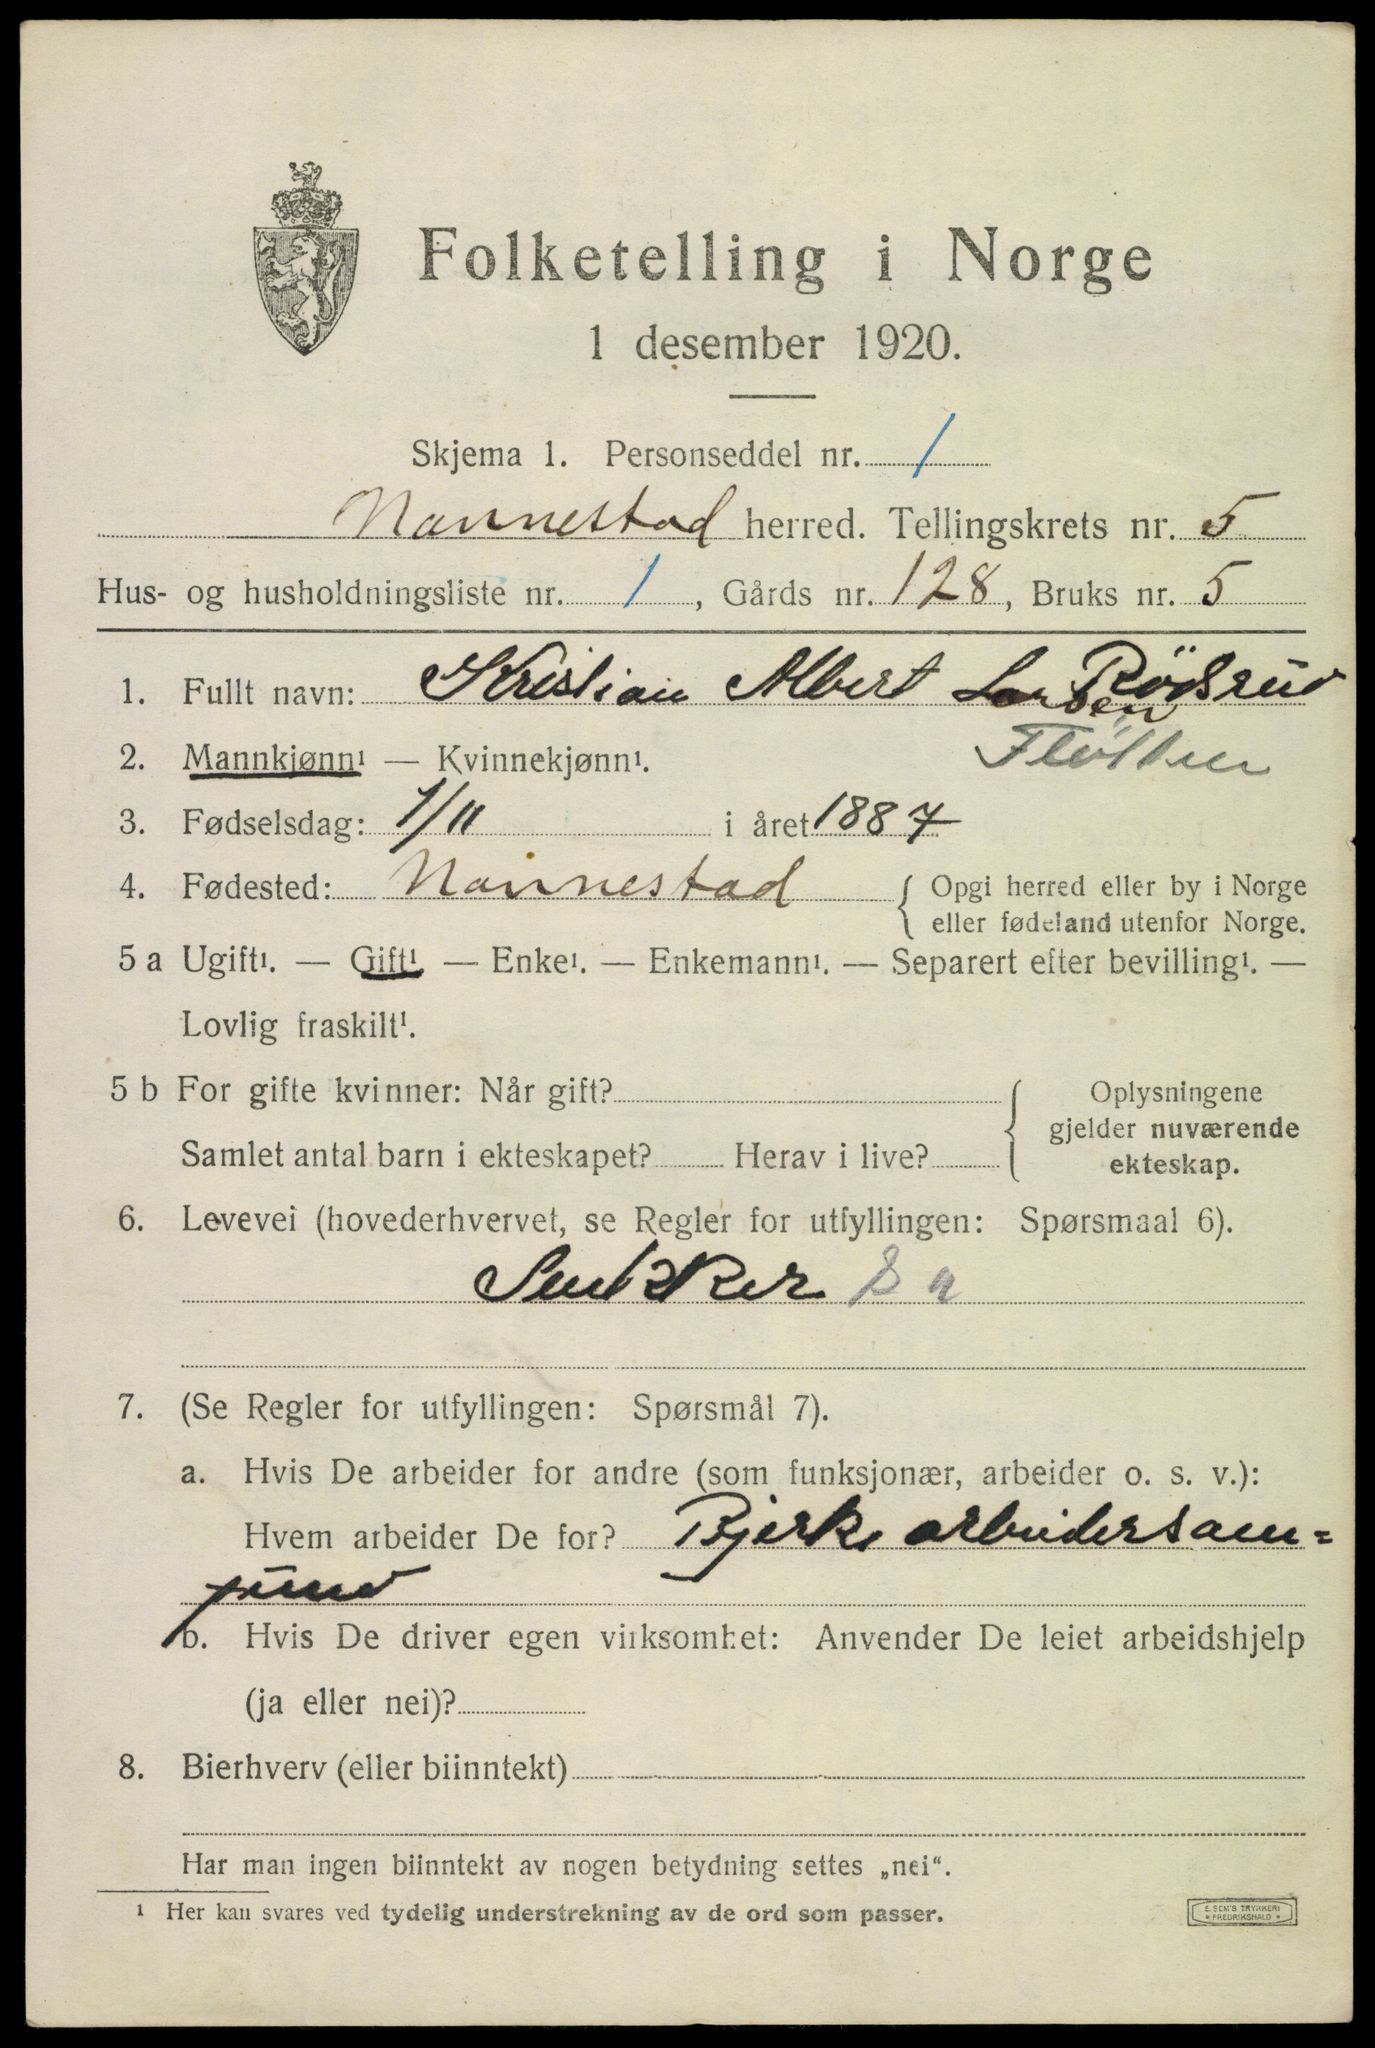 Folketelling i Norge
1 desember 1920.
Skjema 1. Personseddel nr. 1
Nannestad herred. Tellingskrets nr. 5
Hus- og husholdningsliste nr. 1, Gårds nr. 128, Bruks nr. 5
1. Fullt navn: Kristian Albert Larsen Rödsrud
2. Mannkjønn¹ — Kvinnekjønn¹.
3. Fødselsdag: 1/11 i året 1887
4. Fødested: Nannestad { Opgi herred eller by i Norge
eller fødeland utenfor Norge.
5 a Ugift¹. — Gift¹ — Enke¹. — Enkemann¹. — Separert efter bevilling¹. —
Lovlig fraskilt¹.
5 b For gifte kvinner: Når gift? { Oplysningene
gjelder nuværende
Samlet antal barn i ekteskapet? Herav i live?
ekteskap.
6. Levevei (hovederhvervet, se Regler for utfyllingen: Spørsmaal 6).
7. (Se Regler for utfyllingen: Spørsmål 7).
a. Hvis De arbeider for andre (som funksjonær, arbeider o. s. v.):
Hvem arbeider De for? Bjerke arbeidersam=
fund
b. Hvis De driver egen virksomhet: Anvender De leiet arbeidshjelp
(ja eller nei)?
8. Bierhverv (eller biinntekt)
Har man ingen biinntekt av nogen betydning settes „nei“.
¹ Her kan svares ved tydelig understrekning av de ord som passer.
E. SEM'S TRYKKERI
* FREDRIKSHALD *